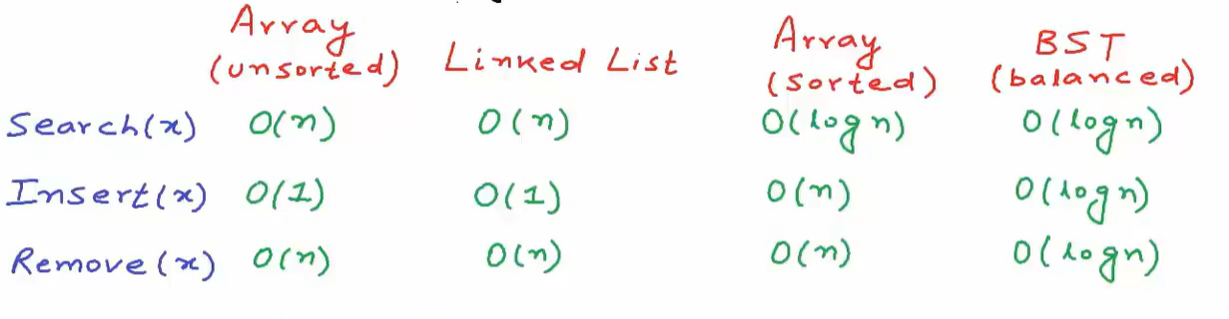 Array (unsorted) Linked List Array (sorted) BST (balanced)
Search(x) O(n) O(n) O(log n) O(log n)
Insert(x) O(1) O(1) O(n) O(log n)
Remove(x) O(n) O(n) O(n) O(log n)